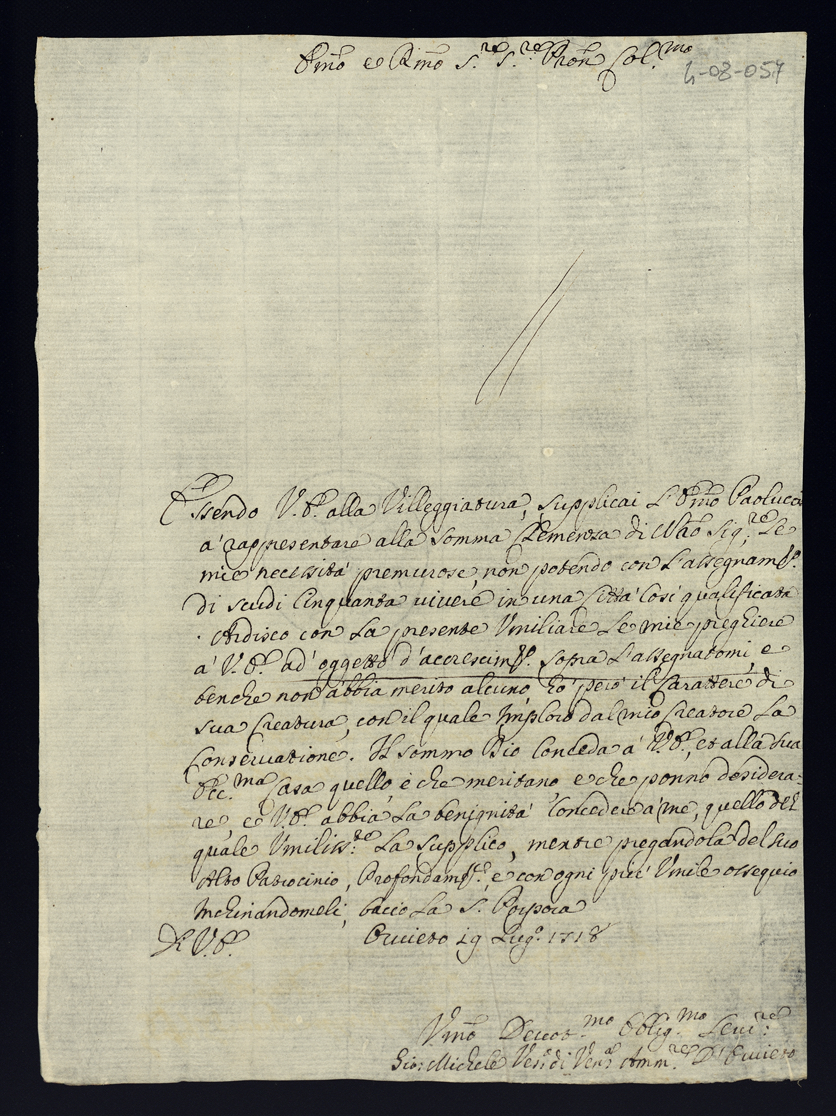 Emo e Rmo S.re S.re Pron Col.mo
4-08-057
Essendo V.E. alla Villeggiatura, supplicai L'Emo Paolucci
a' rappresentare alla somma Clemenza di Nro Sig.re Le
mie necessità premurose, non potendo con L'assegnam.to
di scudi Cinquanta vivere in una Città Così qualificata
. Ardisco con La presente Umiliare Le mie preghiere
à V.E. ad' oggetto d'accrescim.to sopra L'assegnatomi e
benche non abbia merito alcuno, hò però il Carattere di
sua Creatura, con il quale Imploro dal mio Creatore La
Conservatione. Il sommo Dio Conceda a' V.E., et alla sua
Ecc.ma Casa quello è che meritano e che ponno desidera-
re e V.E. abbia La benignità Concedere a me, quello del
quale Umiliss.te La supplico, mentre pregandola del suo
Alto Patrocinio, Profondam.te, e con ogni più Umile ossequio
Inchinandomeli, bacio La S. Porpora
Di V.E. Orvieto 19 Lug.o 1718
Umo Devot.mo Oblig.mo Serv.re
Gio: Michele Amm.re D'Orvieto